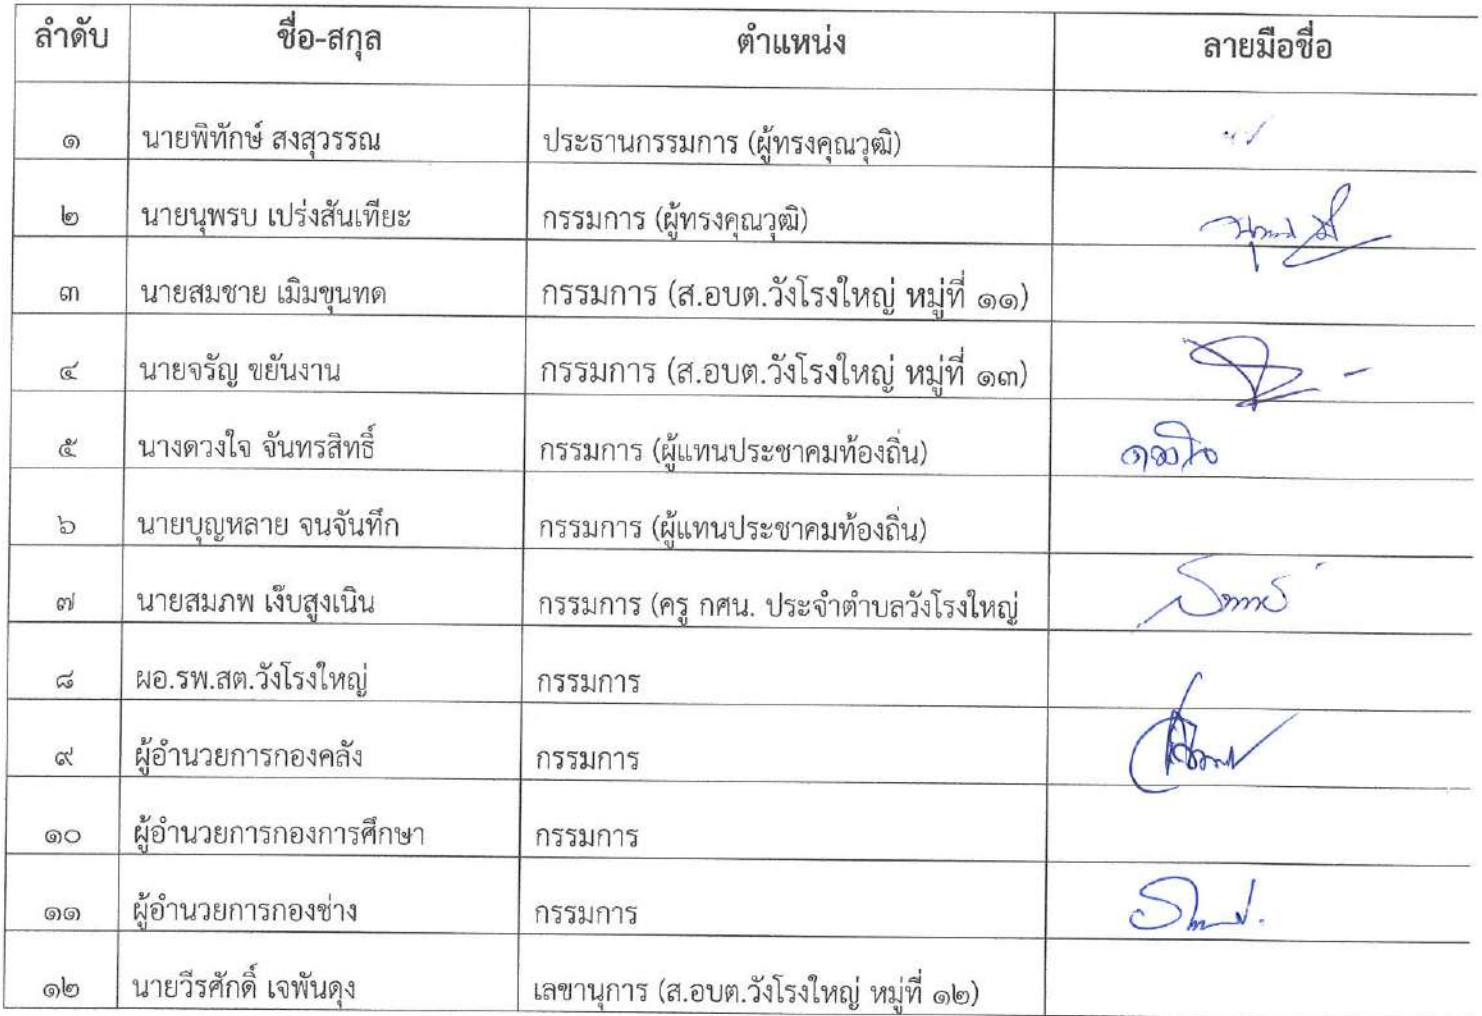 ลำดับ ชื่อ-สกุล ตำแหน่ง ลายมือชื่อ
๑ นายพิทักษ์ สงสุวรรณ ประธานกรรมการ (ผู้ทรงคุณวุฒิ)
๒ นายนุพรบ เปร่งสันเทียะ กรรมการ (ผู้ทรงคุณวุฒิ)
๓ นายสมชาย เมิมขุนทด กรรมการ (ส.อบต.วังโรงใหญ่ หมู่ที่ ๑๑)
๔ นายจรัญ ขยันงาน กรรมการ (ส.อบต.วังโรงใหญ่ หมู่ที่ ๑๓)
๕ นางดวงใจ จันทรสิทธิ์ กรรมการ (ผู้แทนประชาคมท้องถิ่น) ดวงใจ
๖ นายบุญหลาย จนจันทึก กรรมการ (ผู้แทนประชาคมท้องถิ่น)
๗ นายสมภพ เง๊บสูงเนิน กรรมการ (ครู กศน. ประจำตำบลวังโรงใหญ่
๘ ผอ.รพ.สต.วังโรงใหญ่ กรรมการ
๙ ผู้อำนวยการกองคลัง กรรมการ
๑๐ ผู้อำนวยการกองการศึกษา กรรมการ
๑๑ ผู้อำนวยการกองช่าง กรรมการ
๑๒ นายวีรศักดิ์ เจพันดุง เลขานุการ (ส.อบต.วังโรงใหญ่ หมู่ที่ ๑๒)